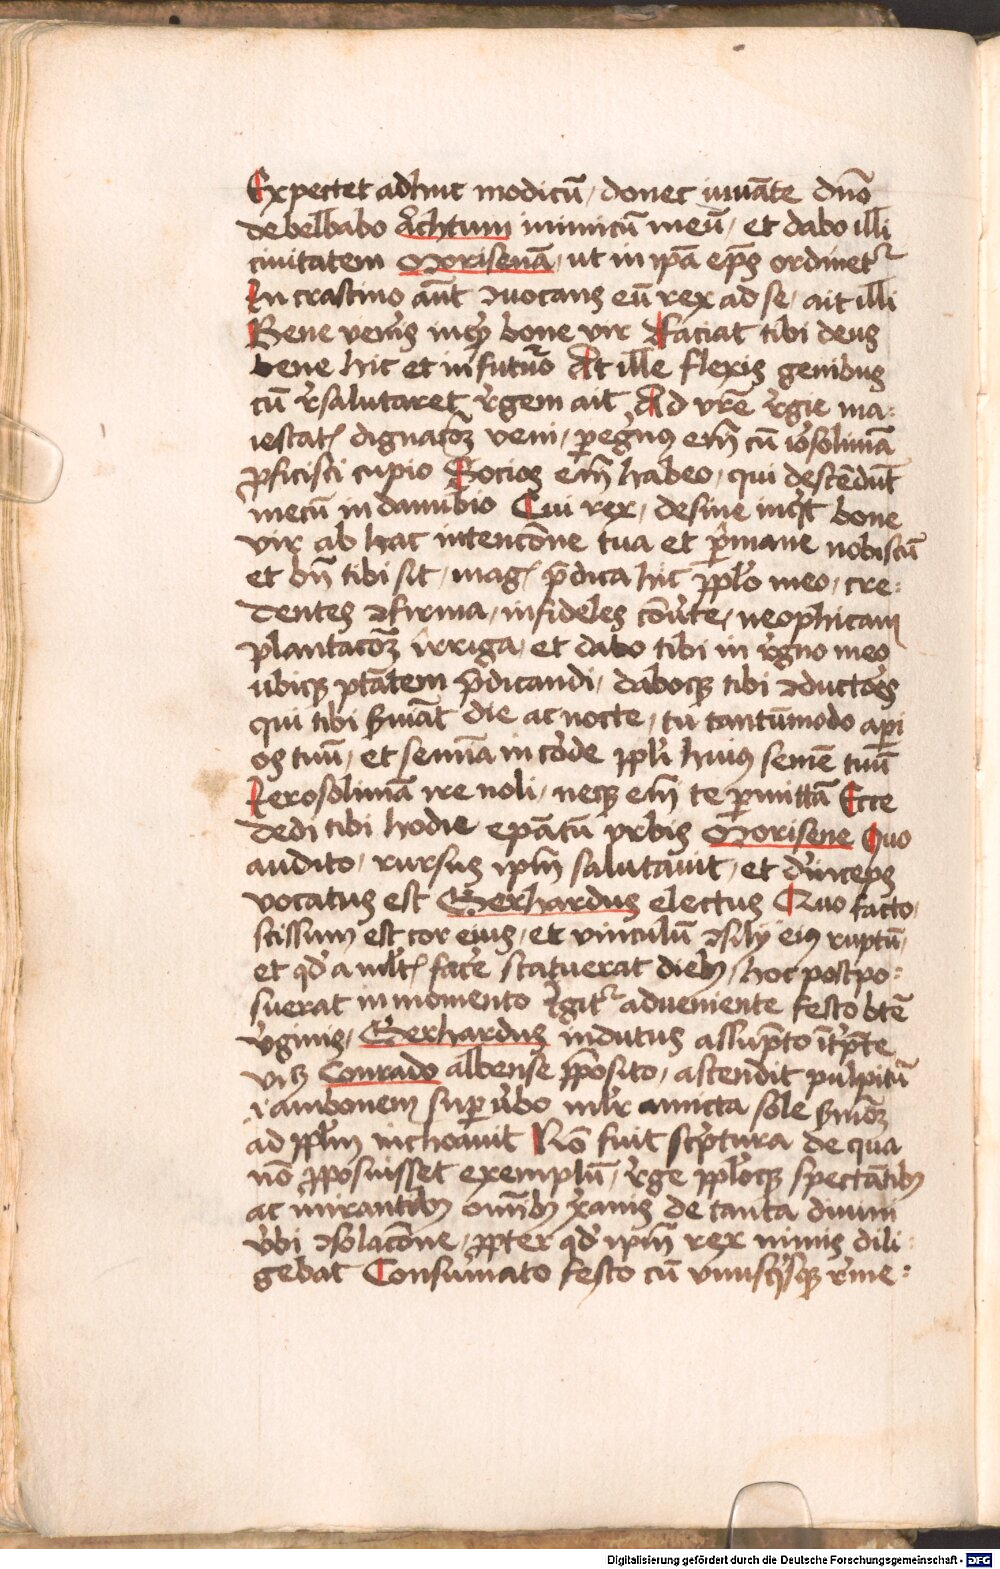 Expectet adhuc modicū / donec iuuāte dn̄o
debelbabo achtum inimicū meū / et dabo illi
ciuitatem Morisenā / ut in ip̄a ep̄s ordinet᷑
In crastino aūt ɔuocans eū rex ad se / ait illi
Bene ven̓is inqͥ bone vir Faciat tibi deus
bene hic et in futuͦo At ille flexis genibus
cū r̓salutaret r̓gem ait Ad vrē r̓gie ma-
iestatꝭ dignacōꝫ veni / ꝑegͥnꝰ em̄ cū iħosolimā
ꝓficisci cupio Socios em̄ habeo / qui descēdūt
mecū in danubio Cui rex / desine inqͥt bone
vir ab hac intencōne tua et ꝑmane nobiscū
et bn̄ tibi sit / magꝭ p̄dica hic ppl̓o meo / cre-
dentes ɔfirma / infideles cōu̓te / neophicam
plantacōꝫ irriga / et dabo tibi in r̓gno meo
ubiqꝫ ptātem p̄dicandi / daboqꝫ tibi ɔductōes
qui tibi ẜuiāt die ac nocte / tu tantūmodo aperi
os tuū / et semīa in corde ppl̓i huiꝰ semē tuū
Ierosolimā ire noli / neqꝫ em̄ te ꝑmittā Ecce
dedi tibi hodie ep̄atū vrbis Morisene Quo
audito / rursus ip̄m salutauit / et d̓inceps
vocatus est Gerhardus electus Quo facto /
scissum est cor eius / et vinculū ɔsilij eiꝰ ruptū /
et qd̓ a ml̓tꝭ fac̓e statuerat diebꝫ / hoc postpo-
suerat in momento Igit᷑ adueniente festo btē
v̓ginis / Gerhardus indutus assūpto int̓p̄te
vicꝫ Conrado albense p̄posito / ascendit pulpitū
.i. ambonem sup v̓bo ml̓r amicta sole ẜmōꝫ
ad ppl̓m inchoauit Nō fuit scͥptura de qua
nō ꝓposuisset exemplū / r̓ge ppl̓oqꝫ spectātibꝫ
ac mirantibꝫ om̄ibꝫ xͥanis de tanta diuini
v̓bi ɔsolacōne / ꝓpter qd̓ ip̄m rex nimis dili-
gebat Consūmato festo cū vnusqͥsqꝫ r̓me-
Digitalisierung gefördert durch die Deutsche Forschungsgemeinschaft - DFG